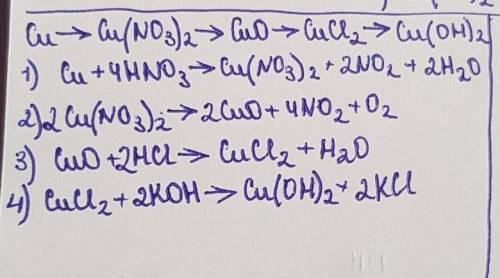 Cu→Cu(NO₃)₂→CuO→CuCl₂→Cu(OH)₂
1) Cu+4HNO₃→Cu(NO₃)₂+2NO₂+2H₂O
2) 2Cu(NO₃)₂→2CuO+4NO₂+O₂
3) CuO+2HCl→CuCl₂+H₂O
4) CuCl₂+2KOH→Cu(OH)₂+2KCl